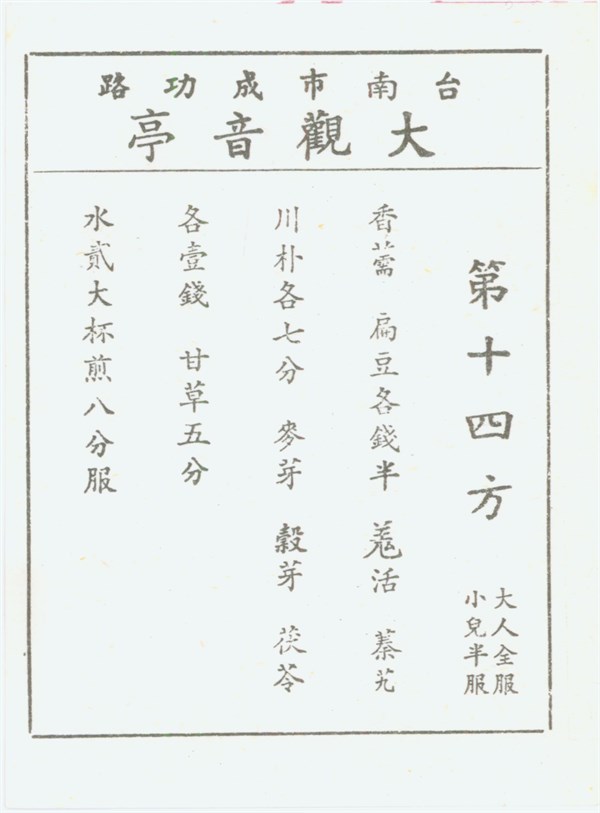 台南市成功路
大觀音亭
第十四方
大人全服
小兒半服
香薷 扁豆各錢半 羗活 蓁艽
川朴各七分 麥芽 穀芽 茯苓
各壹錢 甘草五分
水貳大杯煎八分服